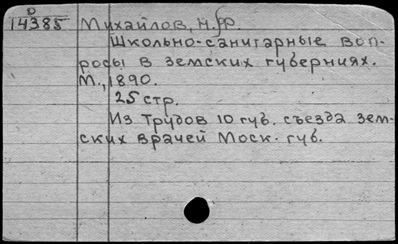 D
14385 Михайлов, Н.Ф.
Школьно-санитарные воп-
росы в земских губерниях.
М., 1890.
25 стр.
Из Трудов 10 губ. съезда зем-
ских врачей Моск. губ.